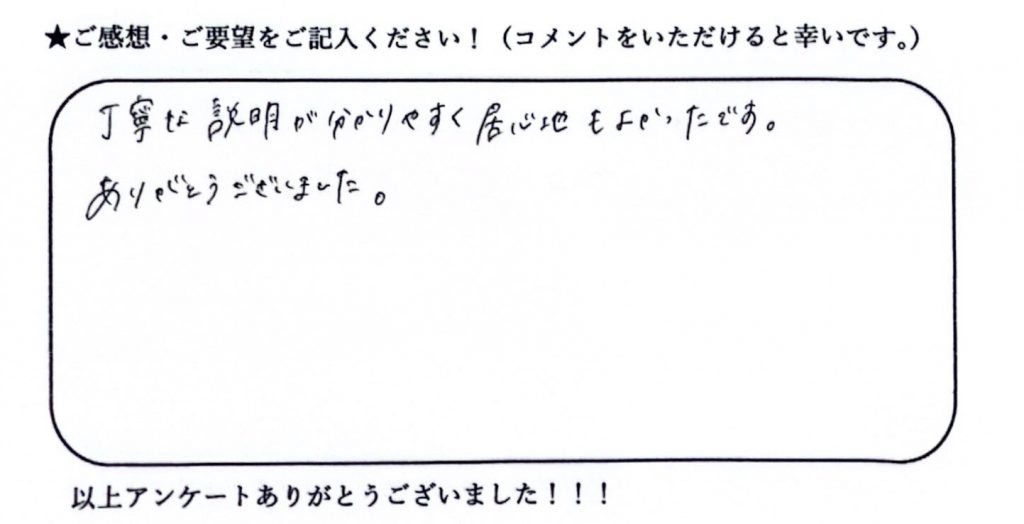 ★ご感想・ご要望をご記入ください！（コメントをいただけると幸いです。）
丁寧な説明が分かりやすく居心地もよかったです。
ありがとうございました。
以上アンケートありがとうございました！！！